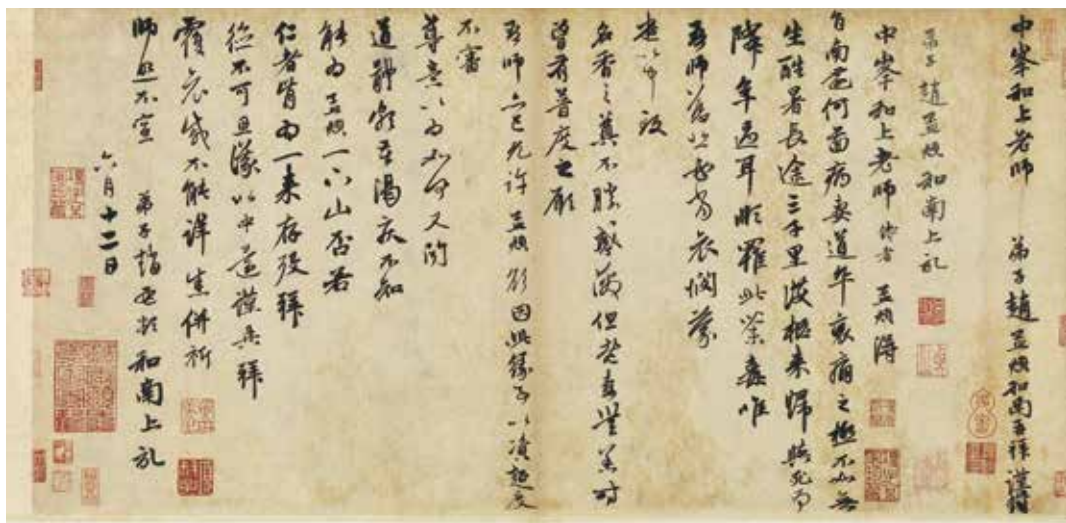 中峯和上老師　弟子趙孟頫和南再拜謹封
弟子趙孟頫和南上記
中峯和上老師侍者　孟頫得
旨南還何啚病妻道卒哀痛之極不如無
生酷暑長途三千里護柩來歸與死為
隣年過耳順罹此荼毒唯
吾師慈悲必當哀憫蒙
遣以中致
名香之奠不勝感激但老妻無恙時
曾有普度之願
吾師亦已允許孟頫欲因此緣事以資超度
不審
尊意以為如何又聞
道體頗苦渴疾不知
能為孟頫一下山否若
仁者肯為一來存歿拜
德不可思議以中還謹具拜
覆哀感不能詳悉併祈
師照不宣　弟子趙孟頫和南上記
六月十二日